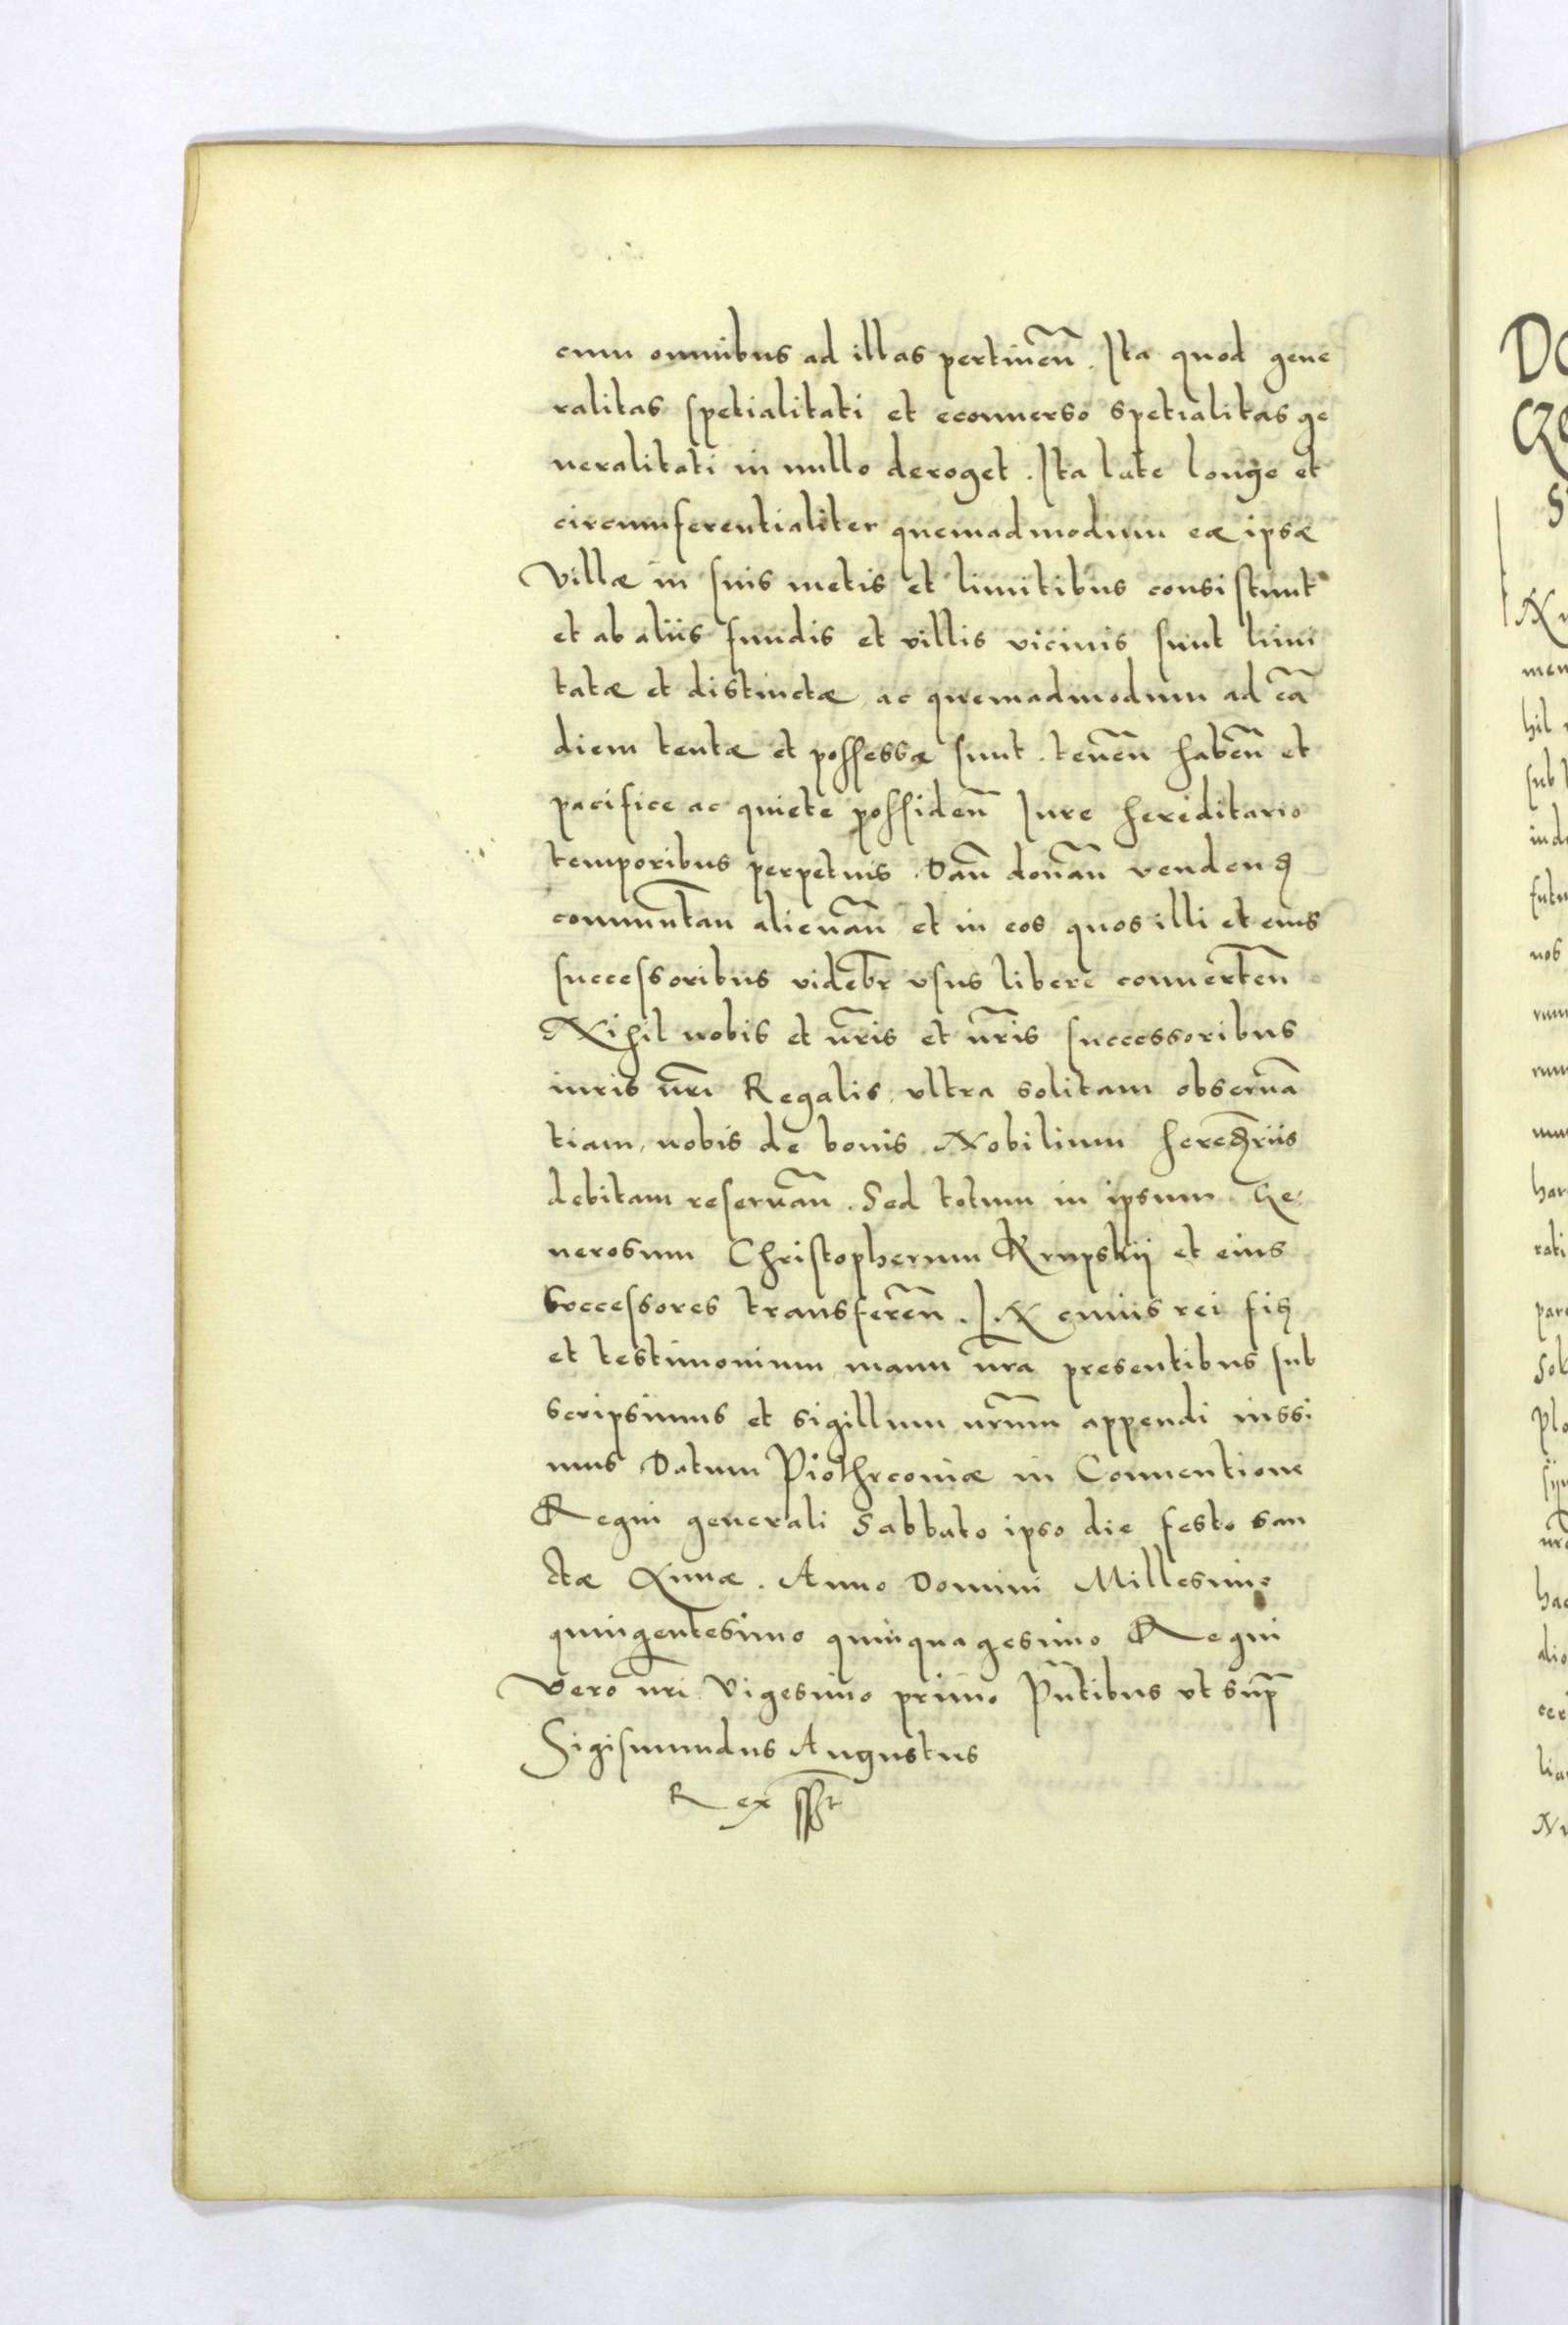 cum omnibus ad illas pertineñ. Ita quod gene
ralitas spetialitati et econuerso spetialitas ge
neralitati in nullo deroget. Ita late longe et
circumferentialiter quemadmodum eæ ipsæ
Villæ in suis metis et limitibus consistunt
et ab aliis fundis et villis vicinis sunt limi
tatæ et distinctæ ac quemadmodum ad eā
diem tentæ et possessæ sunt. teneñ habeñ et
pacifice ac quiete possideñ Iure hereditario
temporibus perpetuis. Dañ donañ vendend
commutan̄ alienañ et in eos quos illi et eius
successoribus videbr̄ vsus libere conuerteñ
Nihil nobis et nr̄is et nr̄is successoribus
iuris nr̄i Regalis vltra solitam obseruā
tiam, nobis de bonis Nobilium heredr̄iis
debitam reseruañ. Sed totum in ipsum Ge
nerosum Christopherum Krupskij et eius
Successores transfereñ. I.N cuius rei fid
et testimonium manu nr̄a presentibus sub
scripsimus et sigillum nr̄um appendi iussi
mus Datum Piothrcouiæ in Conuentione
Regni generali Sabbato ipso die festo san
ctæ Annæ. Anno Domini Millesimo
quingentesimo quinquagesimo Regni
Vero nr̄i Vigesimo primo Pn̄tibus vt sup̄
Sigismundus Augustus
Rex sst